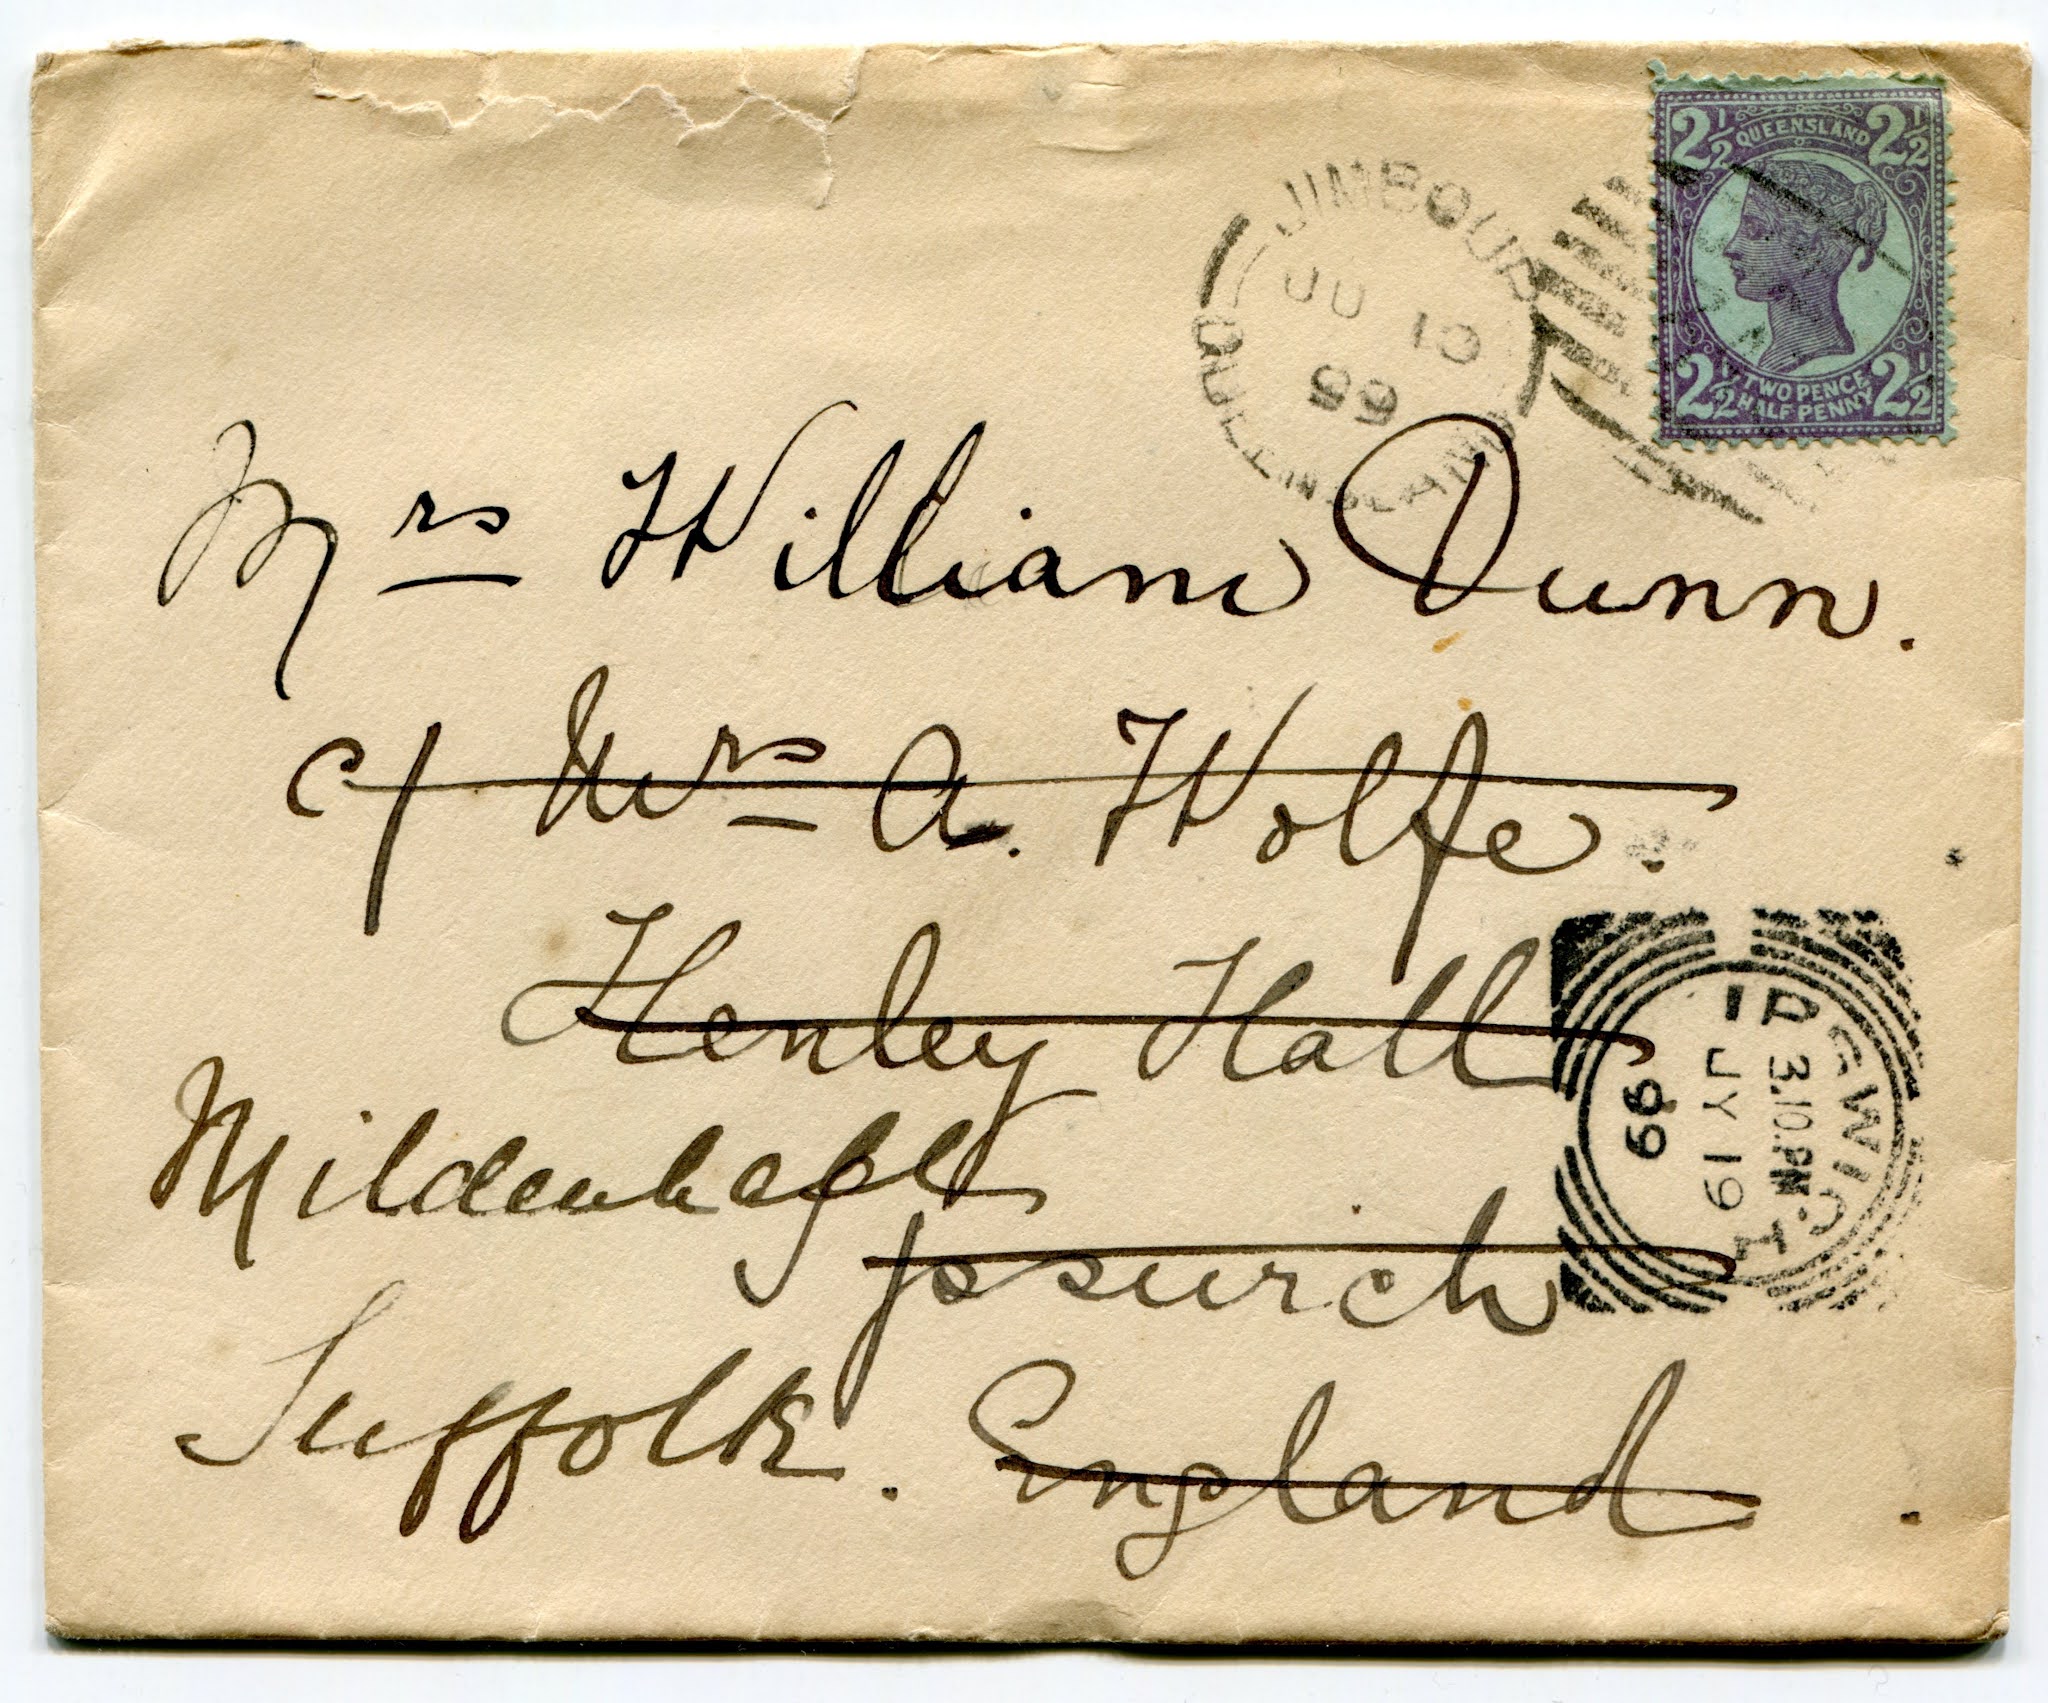 2½ QUEENSLAND 2½
2½ TWO PENCE HALF PENNY 2½
JIMBOUR
JU 10
99
QUEENSLAND
Mrs William Dunn.
c/ Mrs A. Wolfe.
Henley Hall
Mildenhall
Ipswich
Suffolk. England
IPSWICH
3.10.PM
JY 19
99